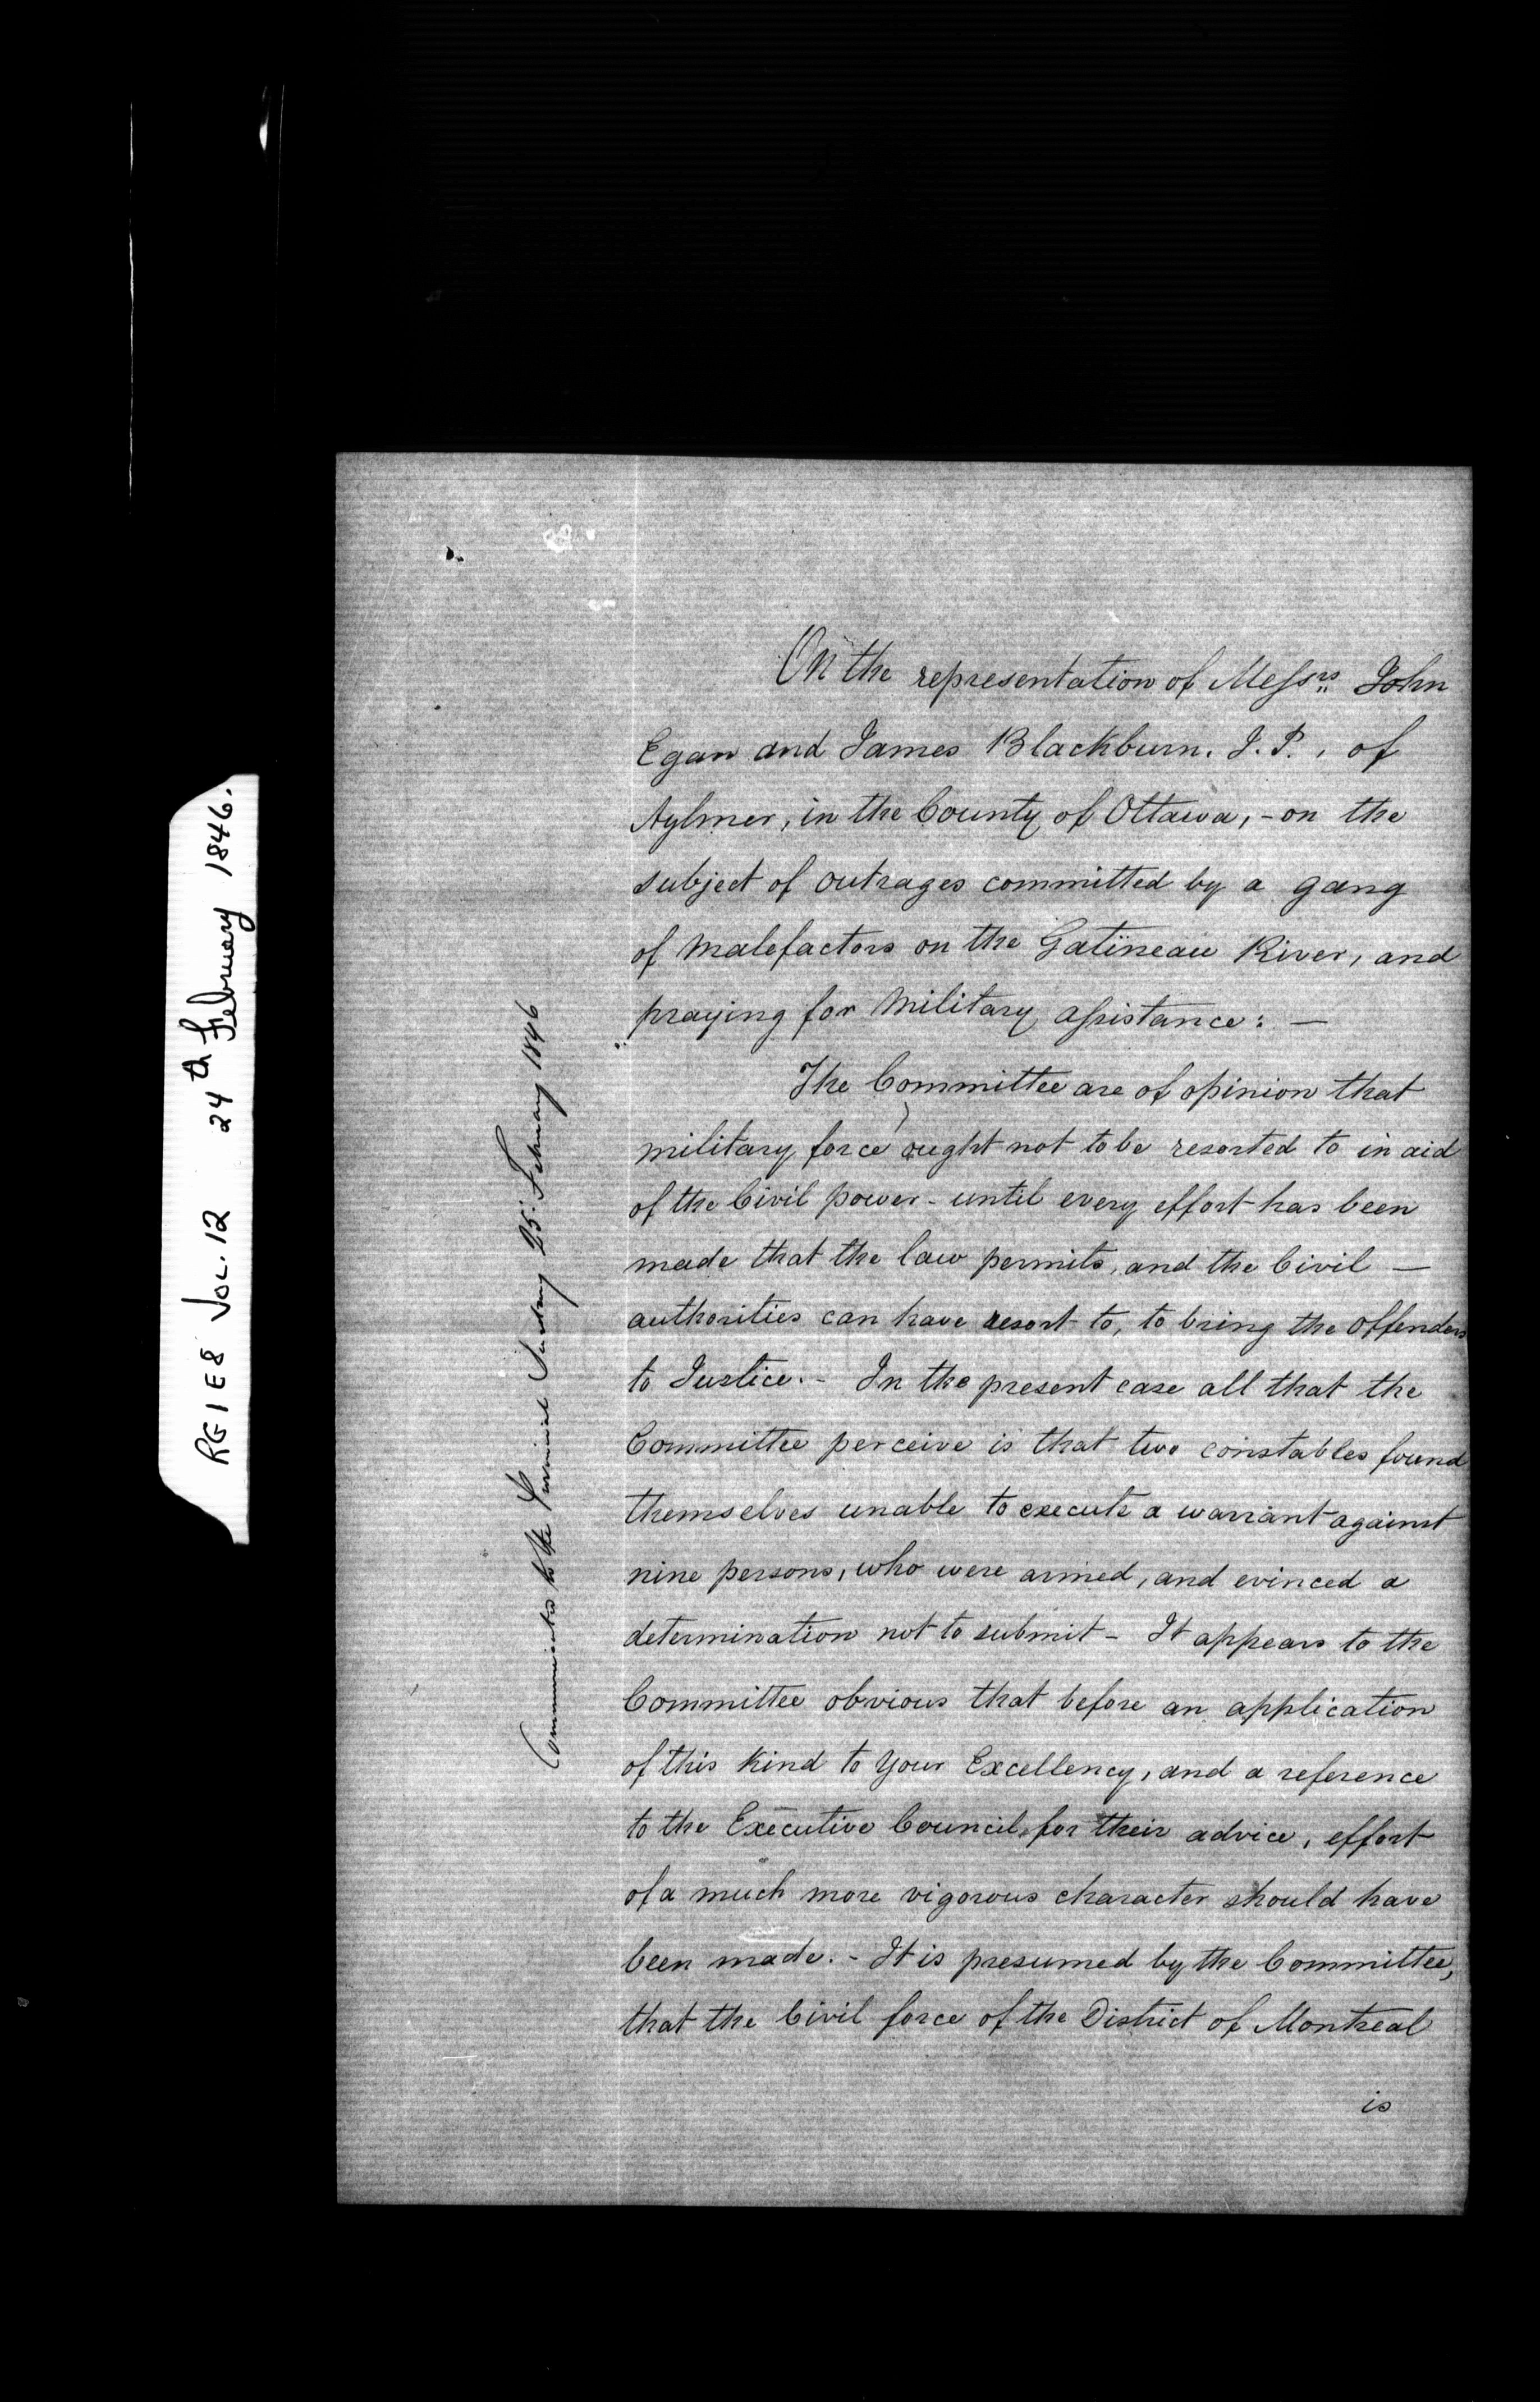 RG 1 E8 Vol. 12 24th February 1846.
Communicated to the Provincial Secretary 25: February 1846
On the representation of Messrs John
Egan and James Blackburn. J. P., of
Aylmer, in the County of Ottawa, - on the
subject of outrages committed by a gang
of Malefactors on the Gatineau River, and
praying for Military assistance: —
The Committee are of opinion that
military force ought not to be resorted to in aid
of the Civil power - until every effort has been
made that the law permits, and the Civil —
authorities can have resort to, to bring the offenders
to Justice. - In the present case all that the
Committee perceive is that two constables found
themselves unable to execute a warrant against
nine persons, who were armed, and evinced a
determination not to submit - It appears to the
Committee obvious that before an application
of this kind to Your Excellency, and a reference
to the Executive Council, for their advice, effort
of a much more vigorous character should have
been made. - It is presumed by the Committee,
that the Civil force of the District of Montreal
is